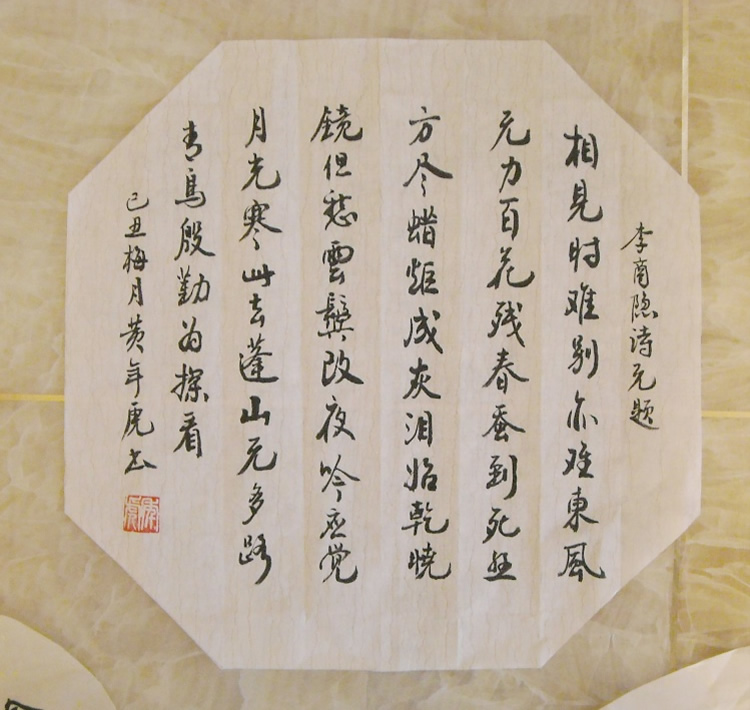 李商隐诗无题
相見时难别亦难東風
无力百花残春蚕到死丝
方尽蜡炬成灰泪始乾晓
镜但愁雲鬓改夜吟应觉
月光寒此去蓬山无多路
青鸟殷勤为探看
己丑梅月黄年虎书